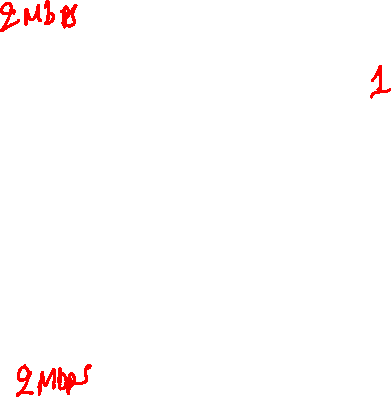 2 Mbps
1
2 Mbps